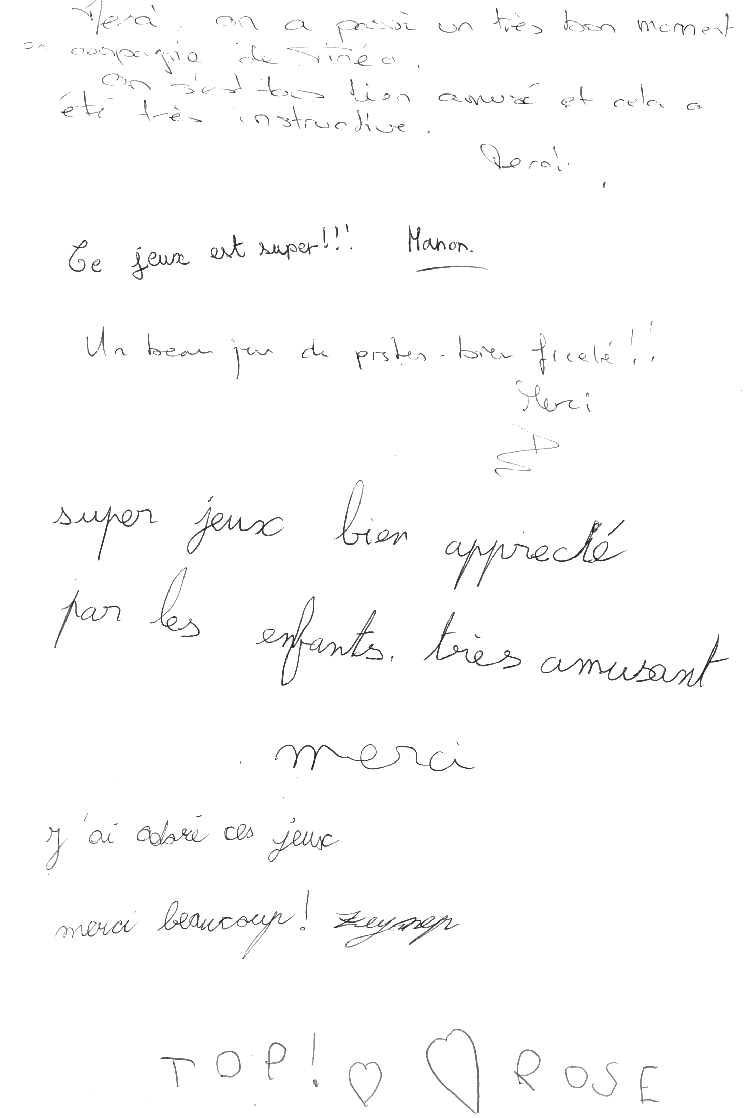 Merci, on a passé un très bon moment
en compagnie de Tinéo.
On s'est tous bien amusé et cela a
été très instructive.
Ce jeux est super!!! Manon.
Un beau jeu de pistes. bien ficelé!!
Merci
super jeux bien apprecié
par les enfants. très amusant
merci
J'ai adoré ces jeux
merci beaucoup! zeynep
TOP! ROSE